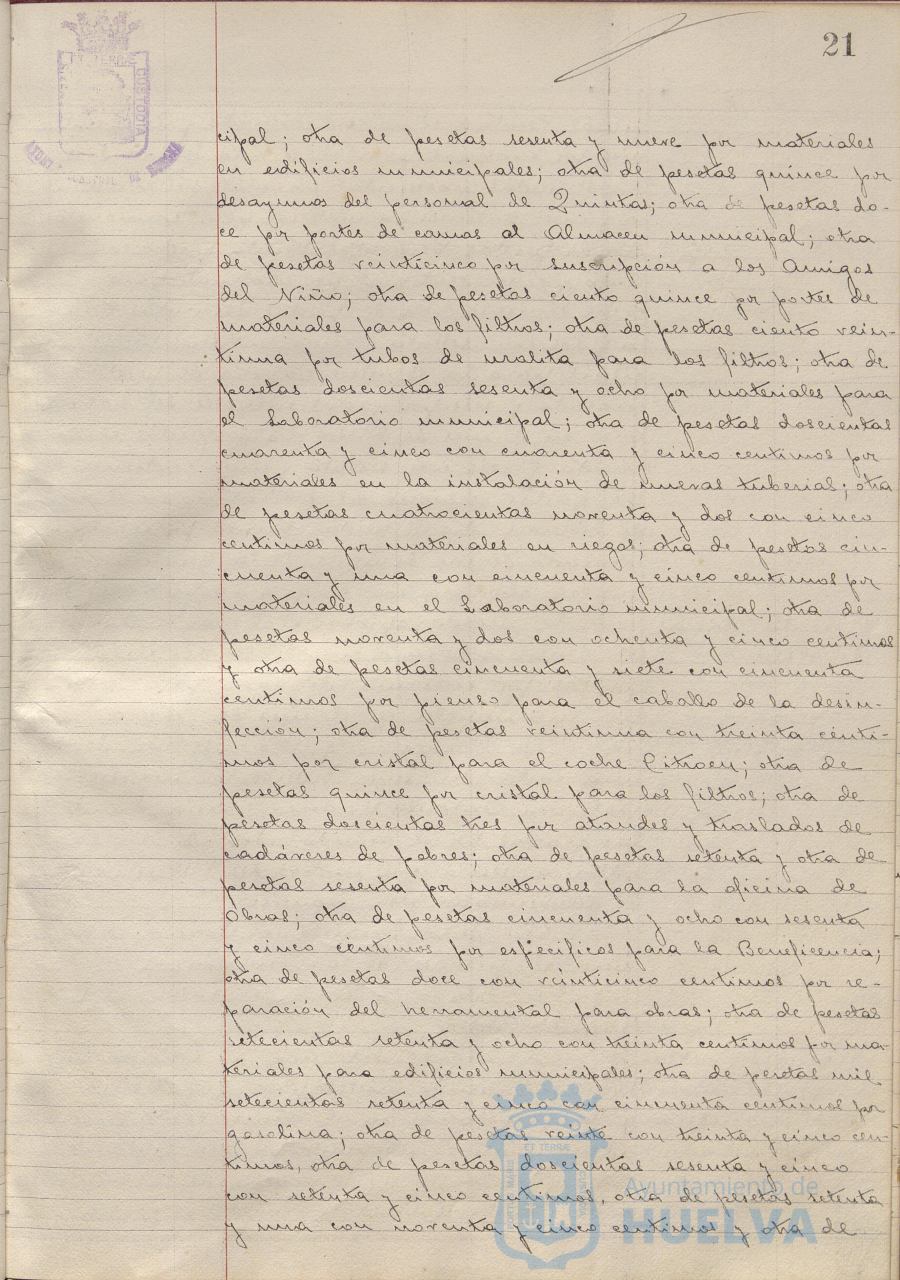 21
cipal; otra de pesetas sesenta y nueve por materiales
en edificios municipales; otra de pesetas quince por
desayunos del personal de Quintas; otra de pesetas do-
ce por portes de camas al Almacen municipal; otra
de pesetas veinticinco por suscripción a los Amigos
del Niño; otra de pesetas ciento quince por portes de
materiales para los filtros; otra de pesetas ciento vein-
tiuna por tubos de uralita para los filtros; otra de
pesetas doscientas sesenta y ocho por materiales para
el Laboratorio municipal; otra de pesetas doscientas
cuarenta y cinco con cuarenta y cinco centimos por
materiales en la instalación de nuevas tuberias; otra
de pesetas cuatrocientas noventa y dos con cinco
centimos por materiales en riegos; otra de pesetas cin-
cuenta y una con cincuenta y cinco centimos por
materiales en el Laboratorio municipal; otra de
pesetas noventa y dos con ochenta y cinco centimos
y otra de pesetas cincuenta y siete con cincuenta
centimos por pienso para el caballo de la desin-
fección; otra de pesetas veintiuna con treinta centi-
mos por cristal para el coche Citroen; otra de
pesetas quince por cristal para los filtros; otra de
pesetas doscientas tres por ataudes y traslados de
cadáveres de pobres; otra de pesetas setenta y otra de
pesetas sesenta por materiales para la oficina de
Obras; otra de pesetas cincuenta y ocho con sesenta
y cinco céntimos por especificos para la Beneficencia;
otra de pesetas doce con veinticinco centimos por re-
paración del herramental para obras; otra de pesetas
setecientas setenta y ocho con treinta centimos por ma-
teriales para edificios municipales; otra de pesetas mil
setecientas setenta y cinco con cincuenta centimos por
gasolina; otra de pesetas veinte con treinta y cinco cen-
timos, otra de pesetas doscientas sesenta y cinco
con setenta y cinco centimos, otra de pesetas setenta
y una con noventa y cinco centimos y otra de
CUSTODIA
ET TERRÆ
Ayuntamiento de
HUELVA